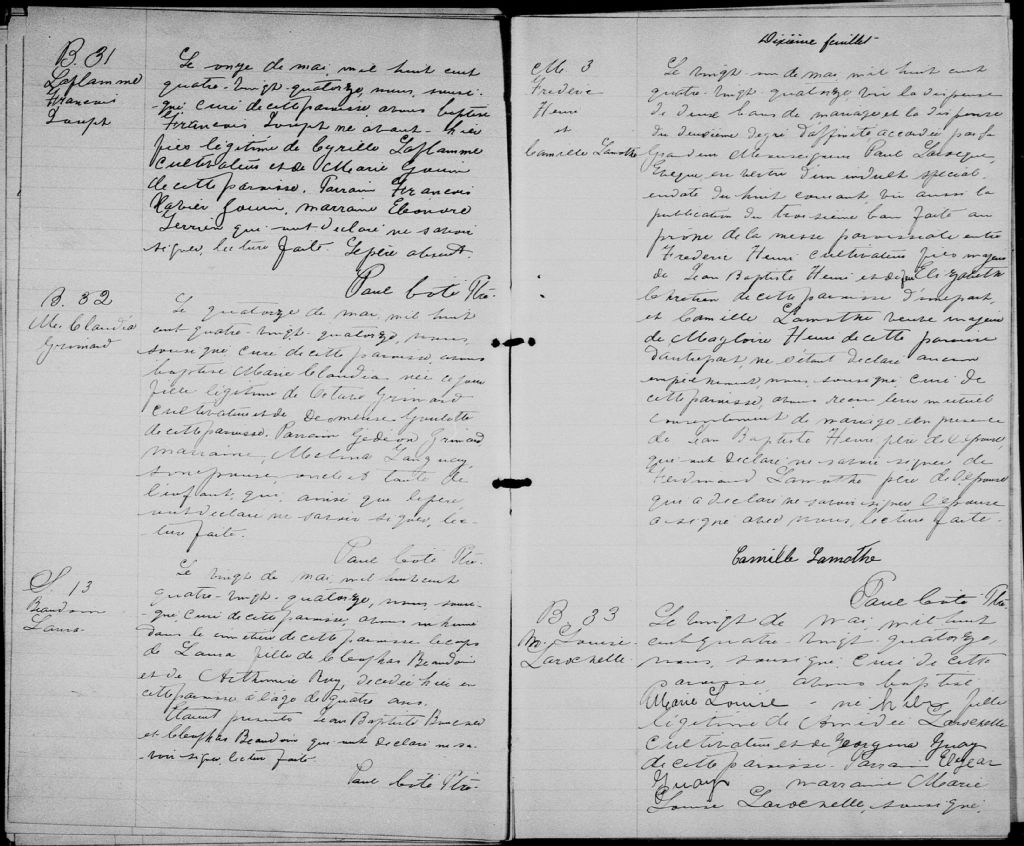 B. 31
Laflamme
Francois
Joseph
Le onze de mai, mil huit cent
quatre-vingt-quatorze, nous, sous-
signé curé de cette paroisse, avons baptisé
Francois Joseph né avant-hier
fils légitime de Cyrille Laflamme
cultivateur et de Marie Gouin
de cette paroisse. Parrain Francois
Xavier Gouin, marraine Eléonore
qui ont déclaré ne savoir
signer, lecture faite. Le père absent.
Paul Coté Ptre.
B. 32
M. Claudia
Grimard
Le quatorze de mai, mil huit
cent quatre-vingt-quatorze, nous,
soussigné curé de cette paroisse, avons
baptisé Marie Claudia née ce jour
fille légitime de Octave Grimard
cultivateur et de Goulette
de cette paroisse. Parrain Gédéon Grimard
marraine, Melina Tanguay,
son épouse, oncle & tante de
l'enfant, qui, ainsi que le père
ont déclaré ne savoir signer, lec-
ture faite.
Paul Coté Ptre.
S. 13
Beaudoin
Laura
Le vingt de mai, mil huit cent
quatre-vingt-quatorze, nous, sous-
signé, curé de cette paroisse, avons inhumé
dans le cimetière de cette paroisse le corps
de Laura fille de Cléophas Beaudoin
et de Roy, décédée hier en
cette paroisse à l'âge de quatre ans.
Etaient présents Jean Baptiste
et Cléophas Beaudoin qui ont déclaré ne sa-
voir signer, lecture faite.
Paul Coté Ptre.
Dixième feuillet
M. 3
Frederic
Henri
et
Camille Lamothe
Le vingt-un de mai, mil huit cent
quatre-vingt-quatorze, vu la dispense
de deux bans de mariage et la dispense
du deuxième degré d'affinité accordée par Sa
Grandeur Monseigneur Paul Larocque,
Evêque, en vertu d'un indult spécial,
en date du huit courant, vu aussi la
publication du troisième ban faite au
prône de la messe paroissiale entre
Frederic Henri cultivateur fils majeur
de Jean Baptiste Henri et de feu Elizabeth
Chretien de cette paroisse d'une part,
et Camille Lamothe veuve majeure
de Magloire Henri de cette paroisse
d'autre part, ne s'étant déclaré aucun
empêchement, nous, soussigné, curé de
cette paroisse, avons reçu leur mutuel
consentement de mariage, en présence
de Jean Baptiste Henri père de l'époux,
qui ont déclaré ne savoir signer de
Ferdinand Lamothe père de l'épouse
qui a déclaré ne savoir signer l'épouse
a signé avec nous, lecture faite.
Camille Lamothe
Paul Coté Ptre.
B. 33
M. Louise
Larochelle.
Le vingt de mai, mil huit
cent quatre-vingt-quatorze,
nous, soussigné, curé de cette
paroisse avons baptisé
Marie Louise - né hier fille
légitime de Amédée Larochelle
cultivateur et de Georgina Guay
de cette paroisse. Parrain Elzéar
Guay marraine Marie
Louise Larochelle, soussigné,